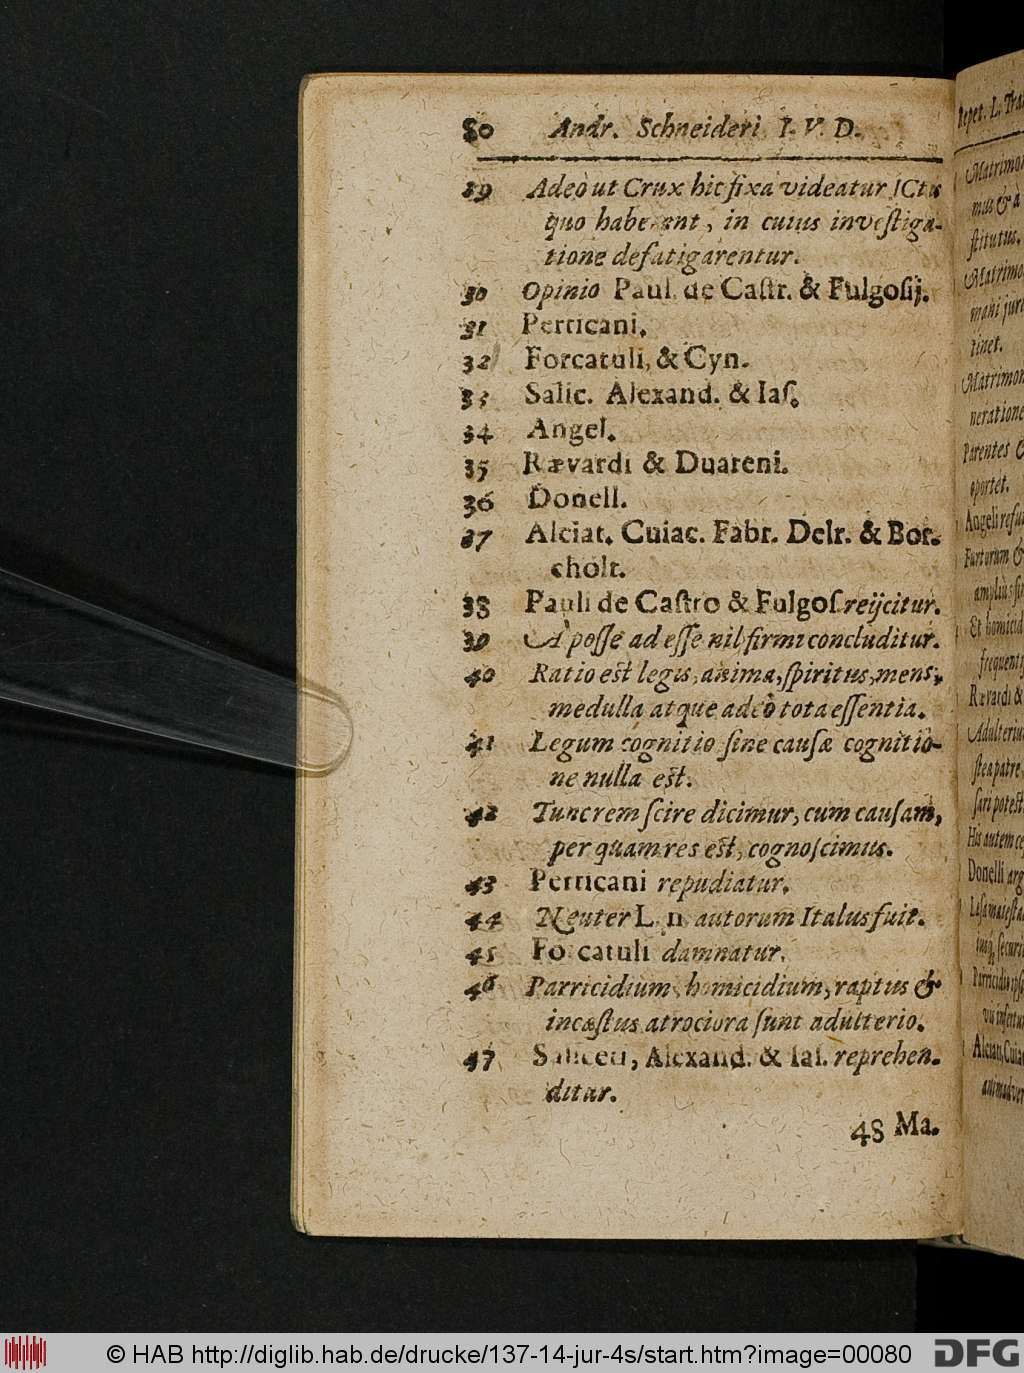 80 Andr. Schneideri I. V. D.
29 Adeò ut Crux hic fixa videatur ICtis
quo haberent, in cuius investiga-
tione defatigarentur.
30 Opinio Paul. de Castr. & Fulgosij.
31 Perticani.
32 Forcatuli, & Cyn.
33 Salic. Alexand. & Iaſ.
34 Angel.
35 Rævardi & Duareni.
36 Donell.
37 Alciat. Cuiac. Fabr. Delr. & Bor-
cholt.
38 Pauli de Caſtro & Fulgoſ. reijcitur.
39 A poſſe ad eſſe nil firmi concluditur.
40 Ratio eſt legis, anima, ſpiritus, mens,
medulla atque adeò tota eſſentia.
41 Legum cognitio ſine cauſæ cognitio-
ne nulla eſt.
42 Tunc rem ſcire dicimur, cum cauſam,
per quam res eſt, cognoſcimus.
43 Perticani repudiatur.
44 Neuter L. n. autorum Italus fuit.
45 Forcatuli damnatur.
46 Parricidium, homicidium, raptus &
incæſtus atrociora ſunt adulterio.
47 Saliceti, Alexand. & Iaſ. reprehen-
ditur.
48 Ma-
Repet. L. Tra
Matrimo
mus & à
ſtitutus.
Matrimo
mani juri
tinet.
Matrimon
neratione
Parentes
oportet.
Angeli refu
Furtorum &
ampliùs
Et homicid
frequent
Rævardi &
Adulteriu
ſtea patre
ſari poteſt
His autem
Donelli arg
Læſa maieſta
Parricidio
Alciati, Cuia
animadver
© HAB http://diglib.hab.de/drucke/137-14-jur-4s/start.htm?image=00080
DFG